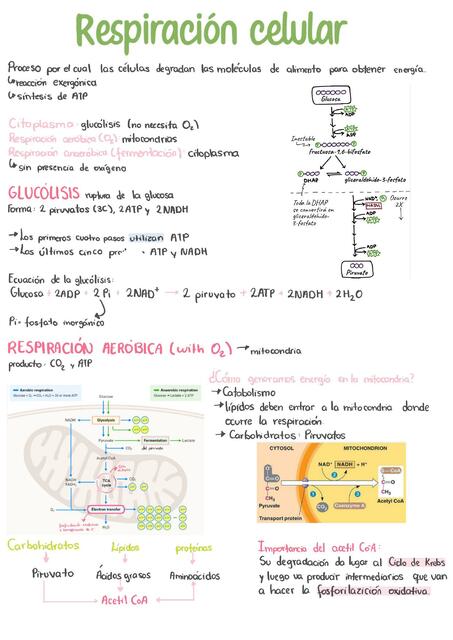 Respiración celular
Proceso por el cual las células degradan las moléculas de alimento para obtener energía.
↳ reacción exergónica
↳ síntesis de ATP
Citoplasma: glucólisis (no necesita O₂)
Respiración aeróbica (O₂): mitocondrias
Respiración anaeróbica (fermentación) citoplasma
↳ sin presencia de oxígeno
GLUCÓLISIS ruptura de la glucosa
forma: 2 piruvatos (3C), 2 ATP y 2 NADH
→ Los primeros cuatro pasos utilizan ATP
→ Los últimos cinco ATP y NADH
Ecuación de la glucólisis:
Glucosa + 2ADP + 2 Pi + 2NAD⁺ → 2 piruvato + 2ATP + 2NADH + 2H₂O
Pi= fosfato inorgánico
Glucosa
ATP
ADP
ATP
ADP
Inestable
fructosa-1,6-bifosfato
DHAP
gliceraldehído-3-fosfato
Toda la DHAP
se convertirá en
gliceraldehído-
3-fosfato
NAD⁺
NADH
Ocurre
2X
ADP
ATP
ADP
ATP
Piruvato
RESPIRACIÓN AERÓBICA (with O₂) → mitocondria
producto: CO₂ y ATP
Aerobic respiration
Anaerobic respiration
Glucose → Lactate + 2 ATP
Glucose
NADH
Glycolysis
Pyruvate
Fermentation
Lactate
CO₂
Acetyl CoA
TCA
cycle
CO₂
NADH
O₂
Electron transfer
H₂O
¿Cómo generamos energía en la mitocondria?
→ Catabolismo
→ lípidos deben entrar a la mitocondria donde
ocurre la respiración
→ Carbohidratos: Piruvatos
CYTOSOL
MITOCHONDRION
NAD⁺
NADH
+ H⁺
Pyruvate
Transport protein
1
2
3
CO₂
Coenzyme A
S—CoA
C=O
CH₃
Acetyl CoA
Carbohidratos
Lípidos
proteínas
Piruvato
Ácidos grasos
Aminoácidos
Acetil CoA
Importancia del acetil CoA:
Su degradación da lugar al Ciclo de Krebs
y luego va producir intermediarios que van
a hacer la fosforilazición oxidativa.